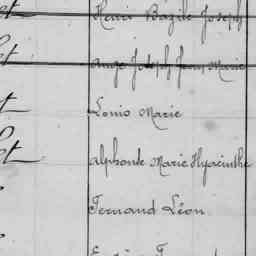 Henri Bazile Joseph
Ange Joseph Jean Marie
Louis Marie
Alphonse Marie Hyacinthe
Fernand Léon